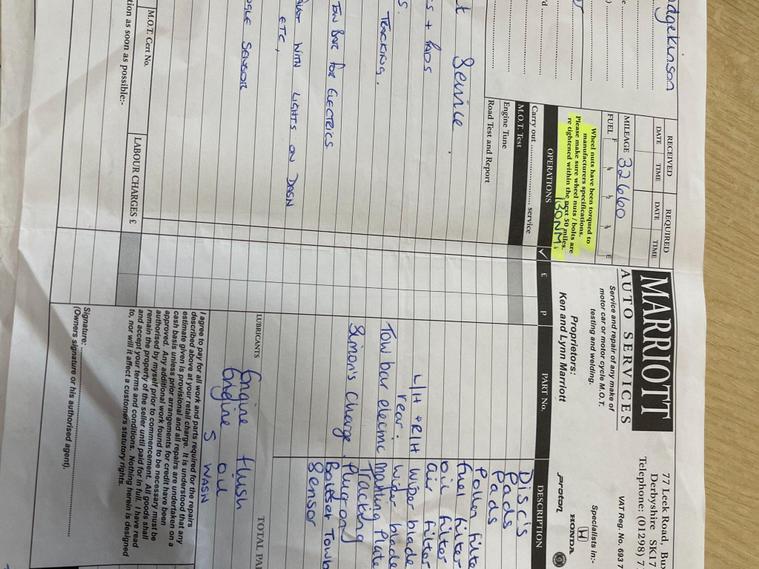 dgekinson
RECEIVED
DATE TIME
REQUIRED
DATE TIME
MILEAGE 32660
FUEL
E
Wheel nuts have been torqued to
manufacturers specifications.
Please make sure wheel nuts / bolts are
re tightened within the next 50 miles.
130NM.
OPERATIONS
Carry out .......... service
M.O.T. Test
Engine Tune
Road Test and Report
Service
TRACKING.
TOW BAR FOR ELECTRICS
WITH LIGHTS ON DASH
ETC,
SENSOR
M.O.T. Cert No.
LABOUR CHARGES £
tion as soon as possible:-
MARRIOTT
AUTO SERVICES
Service and repair of any make of
motor car or motor cycle M.O.T.
testing and welding.
Proprietors:
Ken and Lynn Marriott
77 Leek Road, Bu
Derbyshire SK17
Telephone: (01298) 7
VAT Reg. No. 693 7
Specialists in:-
HONDA
proton
£ P PART No. DESCRIPTION
Disc's
Pads
Pads
Pollen filte
fuel filter
oil filter
air filter
L/H + R/H wiper blade
rear: wiper blade
Tow bar electric Mounting Plate
Tracking
Simon's Charge Plug-on
Bolts for Towb
Sensor
TOTAL PA
LUBRICANTS
Engine flush
Engine oil
S WASN
I agree to pay for all work and parts required for the repairs
described above at your retail charge. It is understood that any
estimate given is provisional and all repairs are undertaken on a
cash basis unless prior arrangements for credit have been
approved. Any additional work found to be necessary must be
authorised by myself prior to commencement. All goods shall
remain the property of the seller until paid for in full. I have read
and accept your terms and conditions. Nothing herein is designed
to, nor will it affect a customer's statutory rights.
Signature:
(Owners signature or his authorised agent).